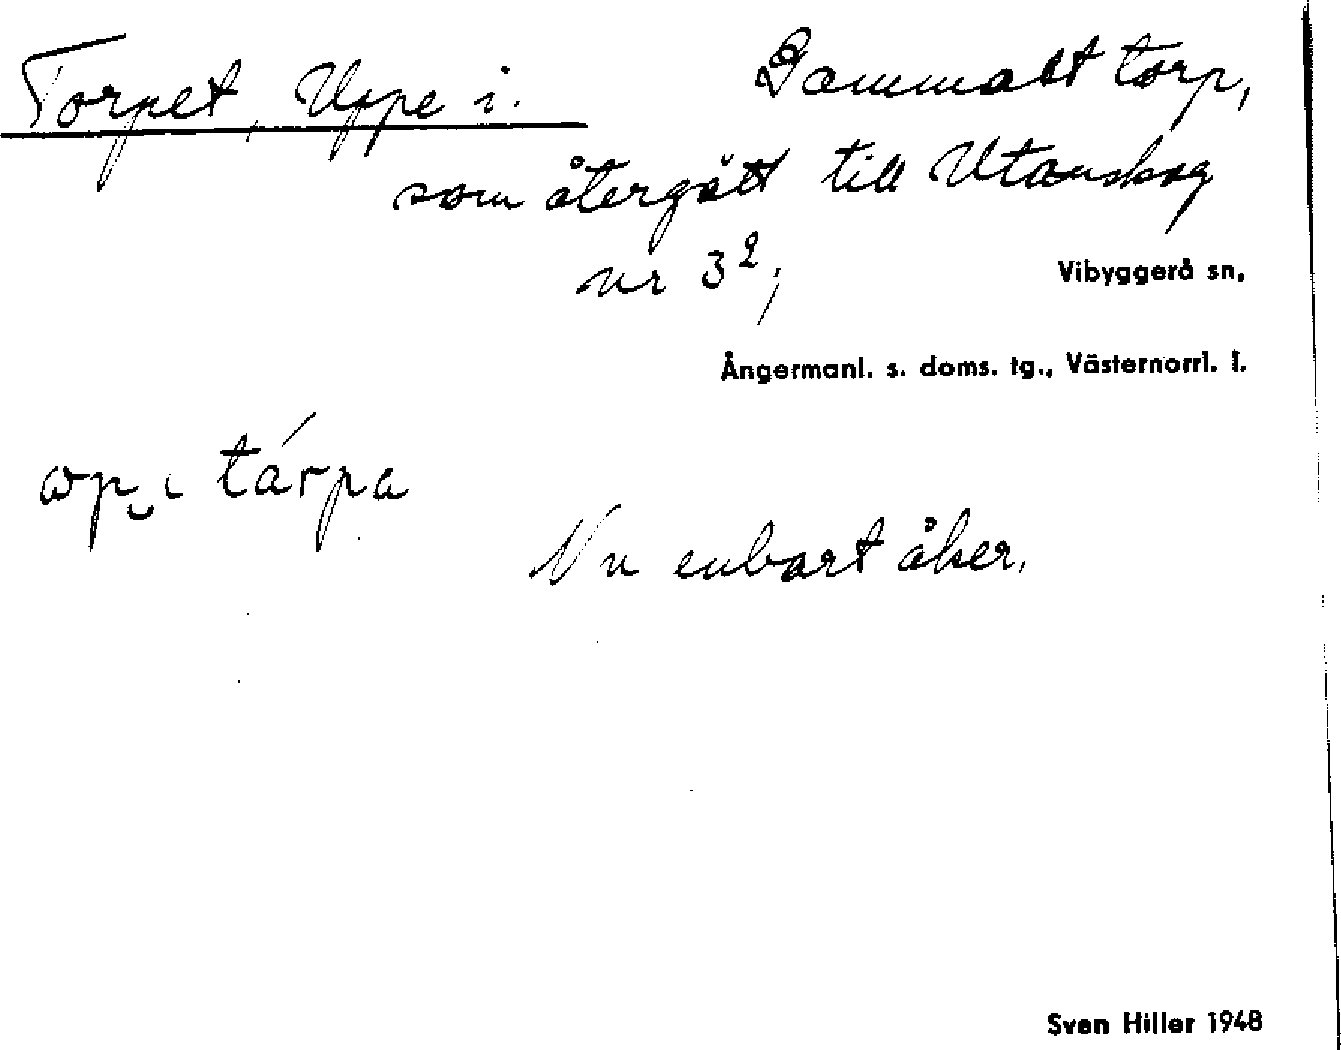 Torpet, Uppe i. Gammalt torp,
som återgått till Utanskog
nr 3²;
Vibyggerå sn,
Ångermanl. s. doms. tg., Västernorrl. l.
ωp‿ι tárpa
Nu enbart åker.
Sven Hiller 1948